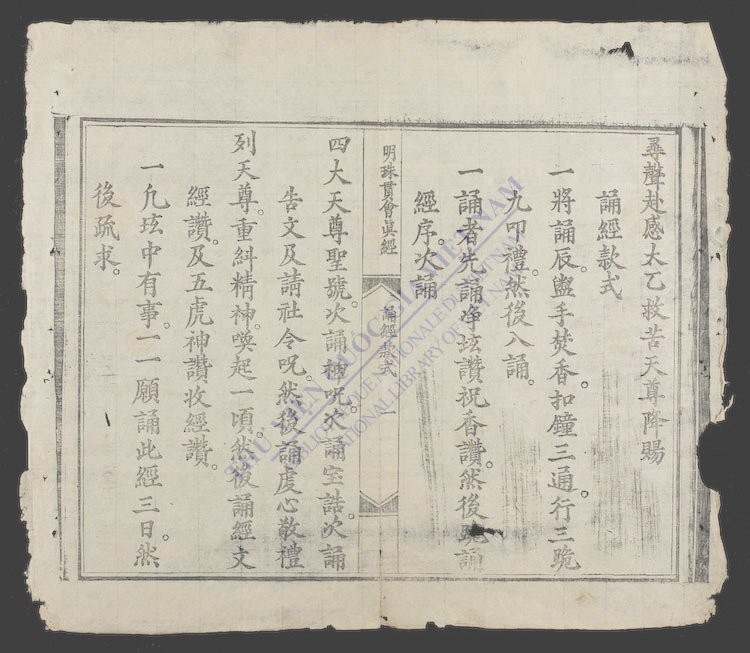 尋聲赴感太乙救苦天尊降賜
誦經款式
一將誦辰。盥手焚香。扣鐘三通。行三跪
九叩禮。然後入誦。
一誦者先誦凈坛讚。祝香讚。然後跪誦
經序。次誦
明珠貫會眞經
誦經款式
一
四大天尊聖號。次誦神呪。次誦宝誥。次誦
告文及請社令呪。然後誦虔心敬禮
列天尊。重糾精神。喚起一頃。然後誦經文
經讚。及五虎神讚收經讚。
一凢坛中有事。一一願誦此經三日。然
後疏求。
THƯ VIỆN QUỐC GIA VIỆT NAM
BIBLIOTHÈQUE NATIONALE DU VIETNAM
NATIONAL LIBRARY OF VIETNAM